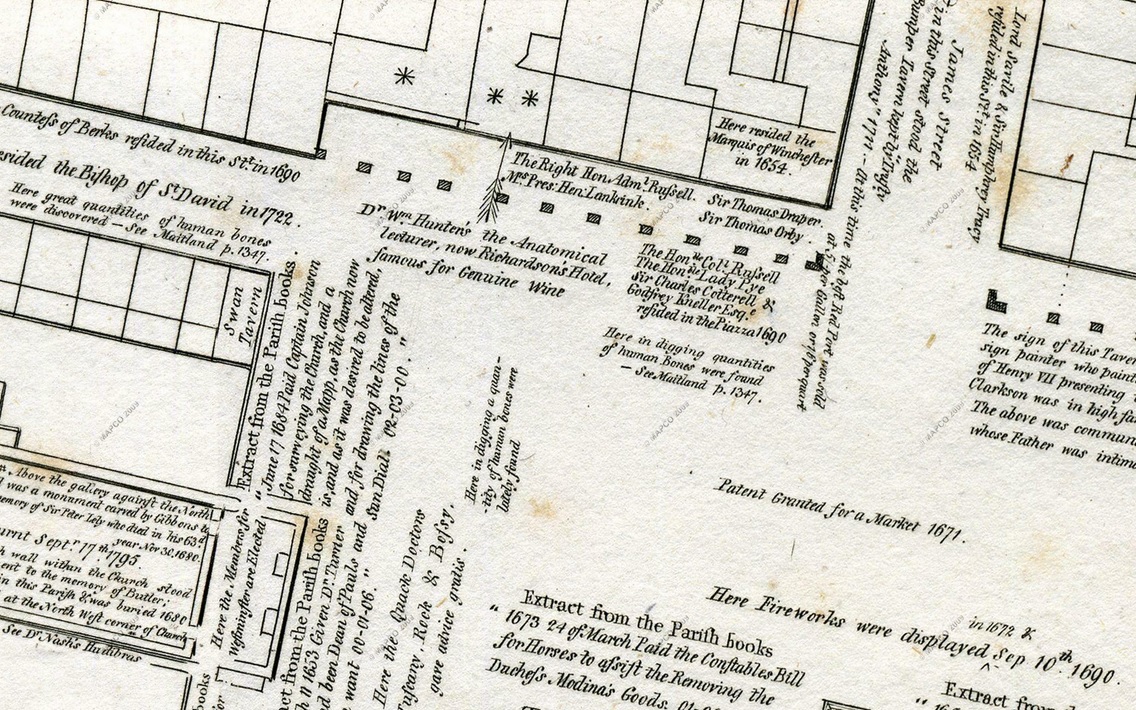 Countess of Berks resided in this St. in 1690
resided the Bishop of St David in 1722.
Here great quantities of human bones
were discovered – See Maitland p. 1347.
Swan
Tavern
Dr Wm Hunter's the Anatomical
lecturer, now Richardsons Hotel,
famous for Genuine Wine
The Right Hon. Adml Russell.
Mrs Pres: Hen: Lankrink.
Sir Thomas Draper.
Sir Thomas Orby.
The Honble Coll Russell
The Honble Lady Pye
Sir Charles Cotterell &
Godfrey Kneller Esqe
resided in the Piazza 1690
Here in digging quantities
of human Bones were found
– See Maitland p. 1347.
Here resided the
Marquis of Winchester
in 1654.
James Street
in this Street Stood the
Bumper Tavern kept by
Anthony" 1711 – At this time the best Red Port was sold
Lord Savile & Sir Humphrey Tracy
resided in this St. in 1654
The sign of this
sign painter who
of Henry VII presenting
Clarkson was in high
The above was
whose Father was
Extract from the Parish books.
"June 17 1684 Paid Captain Johnson
for surveying the Church, and a
draught of a Mapp, as the Church now
is, and as it was desired to be altered,
and for drawing the lines of the
Sun Dial. 02-03-00."
Here in digging a quan-
-tity of human bones were
lately found
Above the gallery against the North
was a monument carved by Gibbons to
memory of Sir Peter Lely who died in his 63d
year Nov 30, 1680.
burnt Septr 17th 1795.
wall within the Church stood
to the memory of Butler,
in this Parish & was buried 1680
at the North West corner of Church
See Dr Nash's Hudibras
Here the Members for
Westminster are Elected
from the Parish books
1653. Given Dr. Turner
had been Dean of Pauls and
want 01-01-06."
Here the Quack Doctors
Tuscany. Rock & Bossy.
gave advice gratis.
books
Patent Granted for a Market 1671.
in 1672 &
Here Fireworks were displayed Sep 10th 1690.
Extract from the Parish books
"1673 24 of March Paid the Constables Bill
for Horses to assist the Removing the
Duchess Modina's Goods.
Extract from
© MAPCO 2009